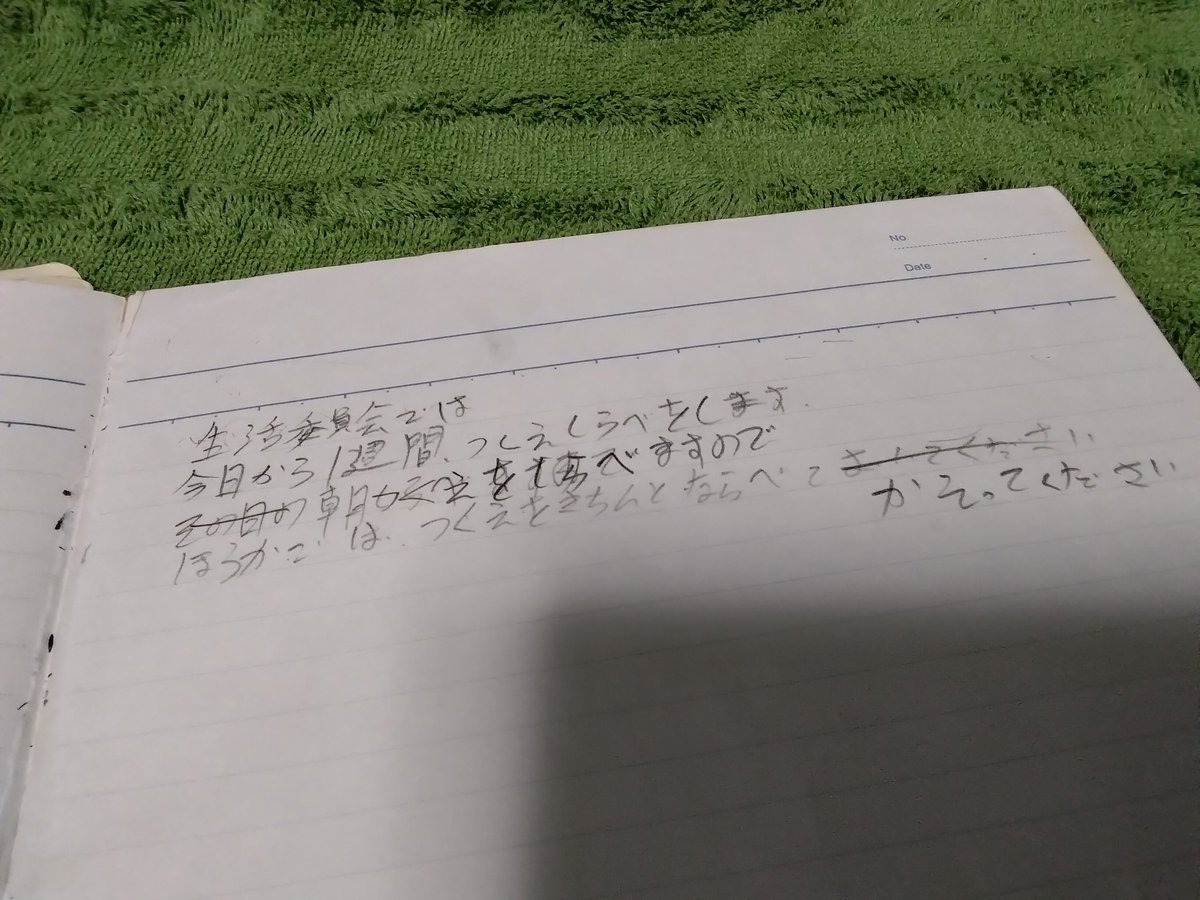 No
Date
生活委員会では
今日から1週間、つくえくらべをします.
その日の朝 をしらべますので
ほうかごは、つくえをきちんとならべて さい
かえってください